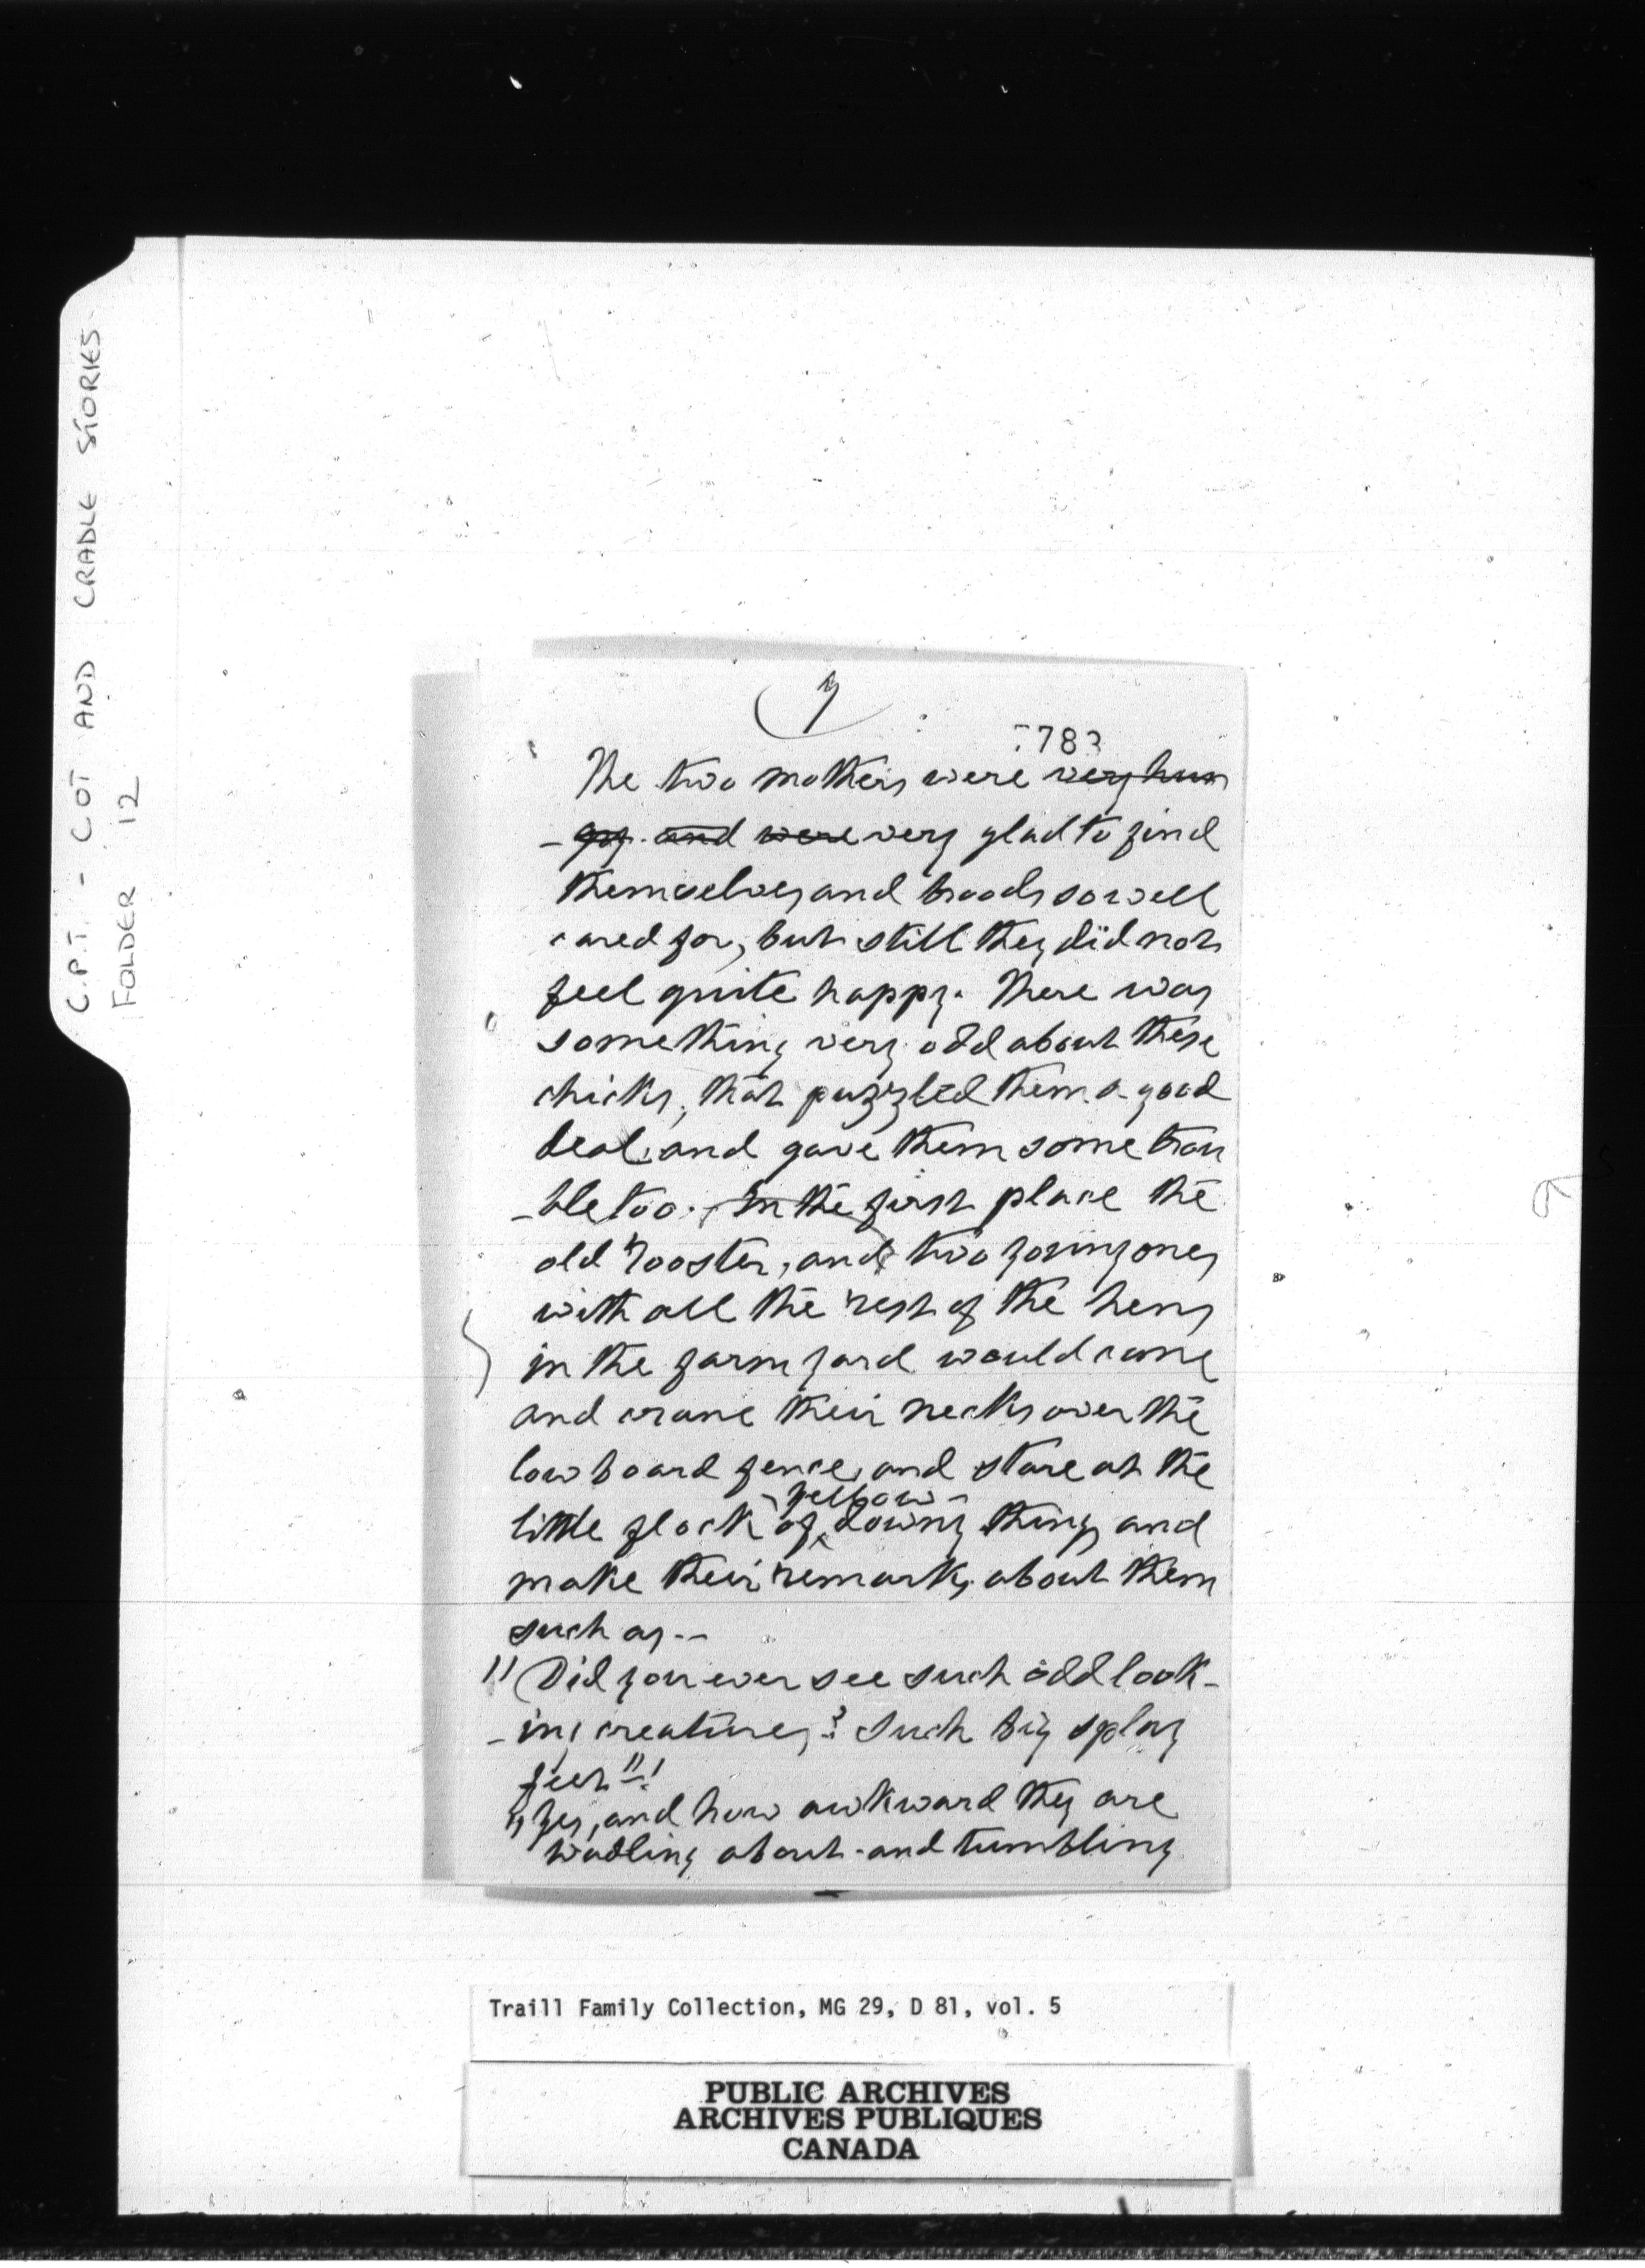 C.P.T. - COT AND CRADLE STORIES
FOLDER 12
7
The two mothers were very hun
-gry and were very glad to find
themselves and broods so well
cared for, but still they did not
feel quite happy. There was
something very odd about these
chicks, that puzzled them a good
deal, and gave them some trou
-ble too. In the first place the
old rooster, and two young ones
with all the rest of the hens
in the farm yard would come
and crane their necks over the
low board fence, and stare at the
yellow
little flock of downy things and
make their remarks about them
such as --
"Did you ever see such odd look-
-ing creatures? Such big splay
feet"!!
"Yes, and how awkward they are
wadling about and tumbling
Traill Family Collection, MG 29, D 81, vol. 5
PUBLIC ARCHIVES
ARCHIVES PUBLIQUES
CANADA